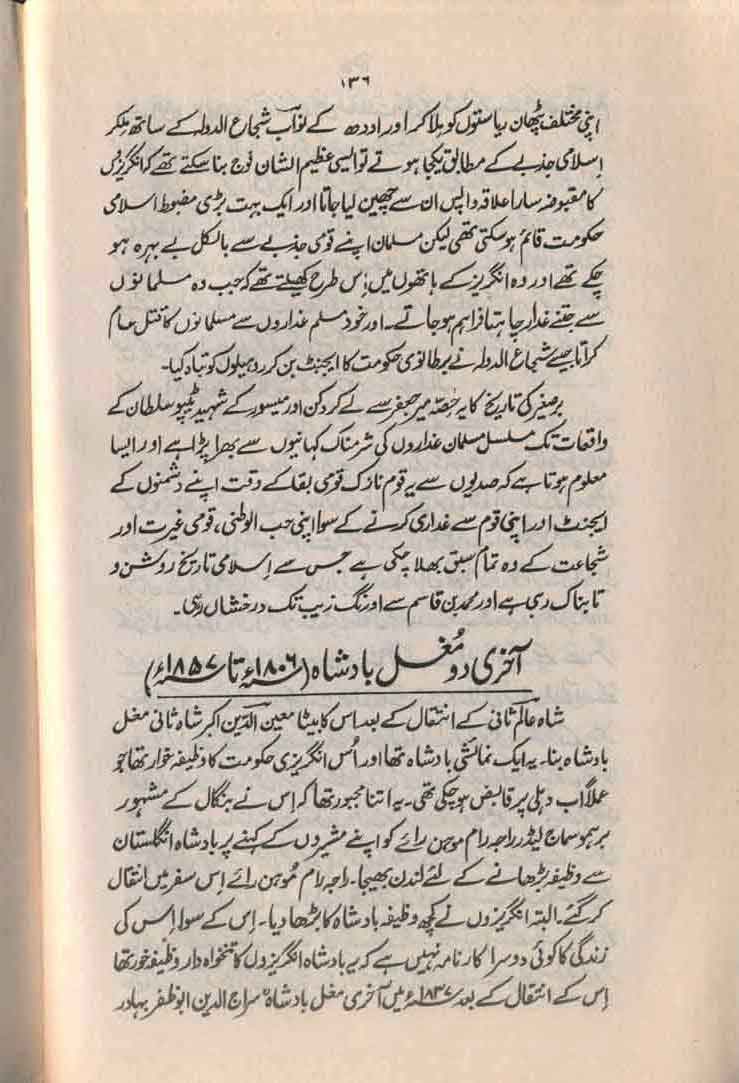 ۱۳۶
اپنی مختلف پٹھان ریاستوں کو ملا کر اور اودھ کے نواب شجاع الدولہ کے ساتھ ملکر
اِسلامی جذبے کے مطابق یکجا ہوتے تو ایسی عظیم الشان فوج بنا سکتے تھے کہ انگریزوں
کا مقبوضہ سارا علاقہ واپس ان سے چھین لیا جاتا اور ایک بہت بڑی مضبوط اسلامی
حکومت قائم ہو سکتی تھی لیکن مسلمان اپنے قومی جذبے سے بالکل بے بہرہ ہو
چکے تھے اور وہ انگریز کے ہاتھوں میں اِس طرح کھیلتے تھے کہ جب وہ مسلمانوں
سے جتنے غدار چاہتا فراہم ہو جاتے۔ اور خود مسلم غداروں سے مسلمانوں کا قتل عام
کراتا جیسے شجاع الدولہ نے برطانوی حکومت کا ایجنٹ بن کر روہیلوں کو تباہ کیا۔
برصغیر کی تاریخ کا یہ حِصّہ میر جعفر سے لے کر دکن اور میسور کے شہید ٹیپو سلطان کے
واقعات تک مسلسل مسلمان غداروں کی شرمناک کہانیوں سے بھرا پڑا ہے اور ایسا
معلوم ہوتا ہے کہ صدیوں سے یہ قوم نازک قومی بقا کے وقت اپنے دشمنوں کے
ایجنٹ اور اپنی قوم سے غداری کرنے کے سوا اپنی حب الوطنی، قومی غیرت اور
شجاعت کے وہ تمام سبق بھلا چکی ہے جس سے اِسلامی تاریخ روشن و
تابناک رہی ہے اور محمد بن قاسم سے اورنگ زیب تک درخشاں رہی۔
آخری دو مُغل بادشاہ (۱۸۰۶ء تا ۱۸۵۷ء)
شاہ عالم ثانی کے انتقال کے بعد اس کا بیٹا معین الدین اکبر شاہ ثانی مغل
بادشاہ بنا۔ یہ ایک نمائشی بادشاہ تھا اور اُس انگریزی حکومت کا وظیفہ خوار تھا جو
عملاً اب دہلی پر قابض ہو چکی تھی۔ یہ اتنا مجبور تھا کہ اِس نے بنگال کے مشہور
برہمو سماج لیڈر راجہ رام موہن رائے کو اپنے مشیروں کے کہنے پر بادشاہ انگلستان
سے وظیفہ بڑھانے کے لئے لندن بھیجا۔ راجہ رام مُوہن رائے اِس سفر میں انتقال
کر گئے۔ البتہ انگریزوں نے کچھ وظیفہ بادشاہ کا بڑھا دیا۔ اِس کے سوا اِس کی
زندگی کا کوئی دوسرا کارنامہ نہیں ہے کہ یہ بادشاہ انگریزوں کا تنخواہ دار وظیفہ خور تھا
اِس کے انتقال کے بعد ۱۸۳۷ء میں آخری مغل بادشاہ سراج الدین ابوظفر بہادر